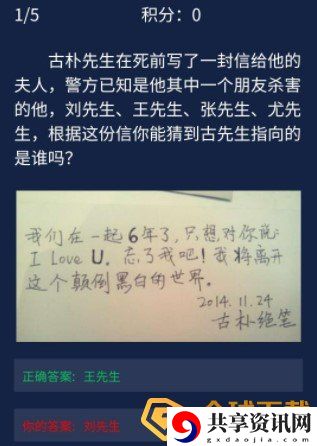 1/5 积分：0
古朴先生在死前写了一封信给他的
夫人，警方已知是他其中一个朋友杀害
的他，刘先生、王先生、张先生、尤先
生，根据这份信你能猜到古先生指向的
是谁吗？
我们在一起6年了，只想对你说
I Love U。忘了我吧！我将离开
这个颠倒黑白的世界。
2014.11.24
古朴绝笔
正确答案：王先生
你的答案：刘先生
共享资讯网
www.gxdaojia.com